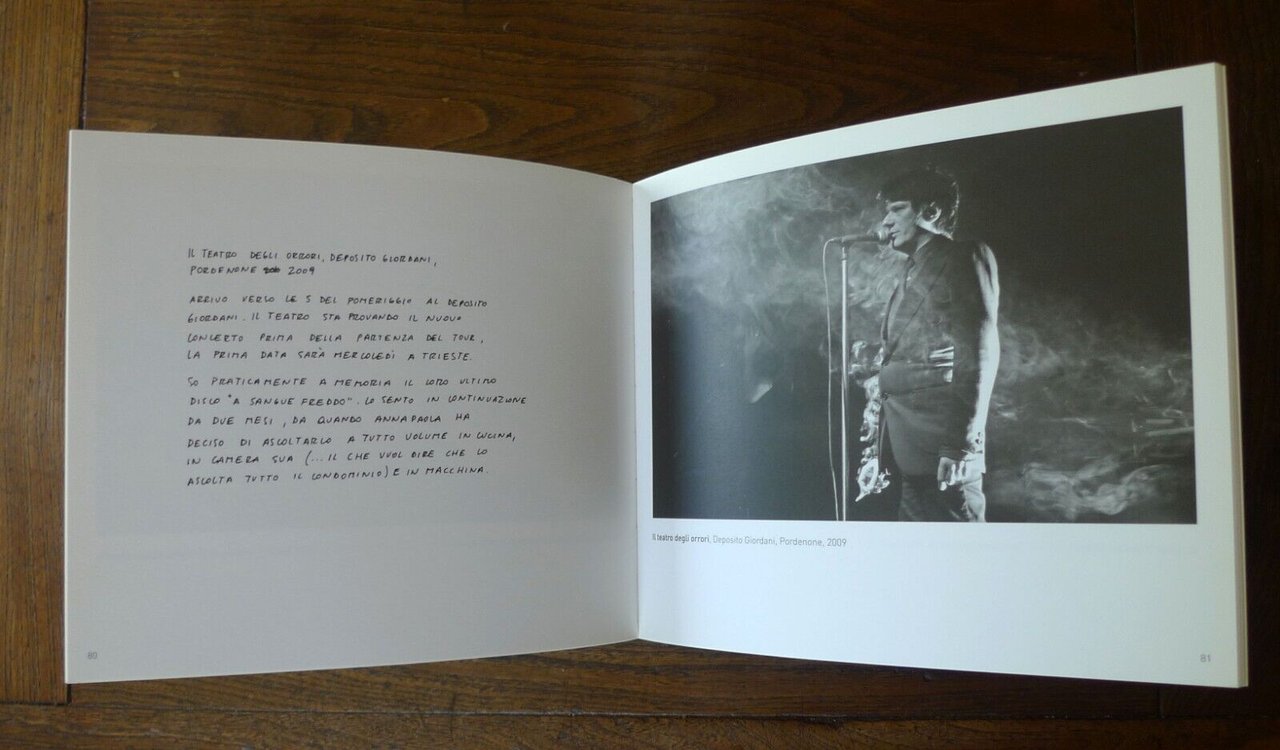 IL TEATRO DEGLI ORRORI, DEPOSITO GIORDANI,
PORDENONE 2009
ARRIVO VERSO LE 5 DEL POMERIGGIO AL DEPOSITO
GIORDANI. IL TEATRO STA PROVANDO IL NUOVO
CONCERTO PRIMA DELLA PARTENZA DEL TOUR,
LA PRIMA DATA SARÀ MERCOLEDÌ A TRIESTE.
SO PRATICAMENTE A MEMORIA IL LORO ULTIMO
DISCO "A SANGUE FREDDO". LO SENTO IN CONTINUAZIONE
DA DUE MESI, DA QUANDO ANNAPAOLA HA
DECISO DI ASCOLTARLO A TUTTO VOLUME IN CUCINA,
IN CAMERA SUA (... IL CHE VUOL DIRE CHE LO
ASCOLTA TUTTO IL CONDOMINIO) E IN MACCHINA.
80
Il teatro degli orrori, Deposito Giordani, Pordenone, 2009
81